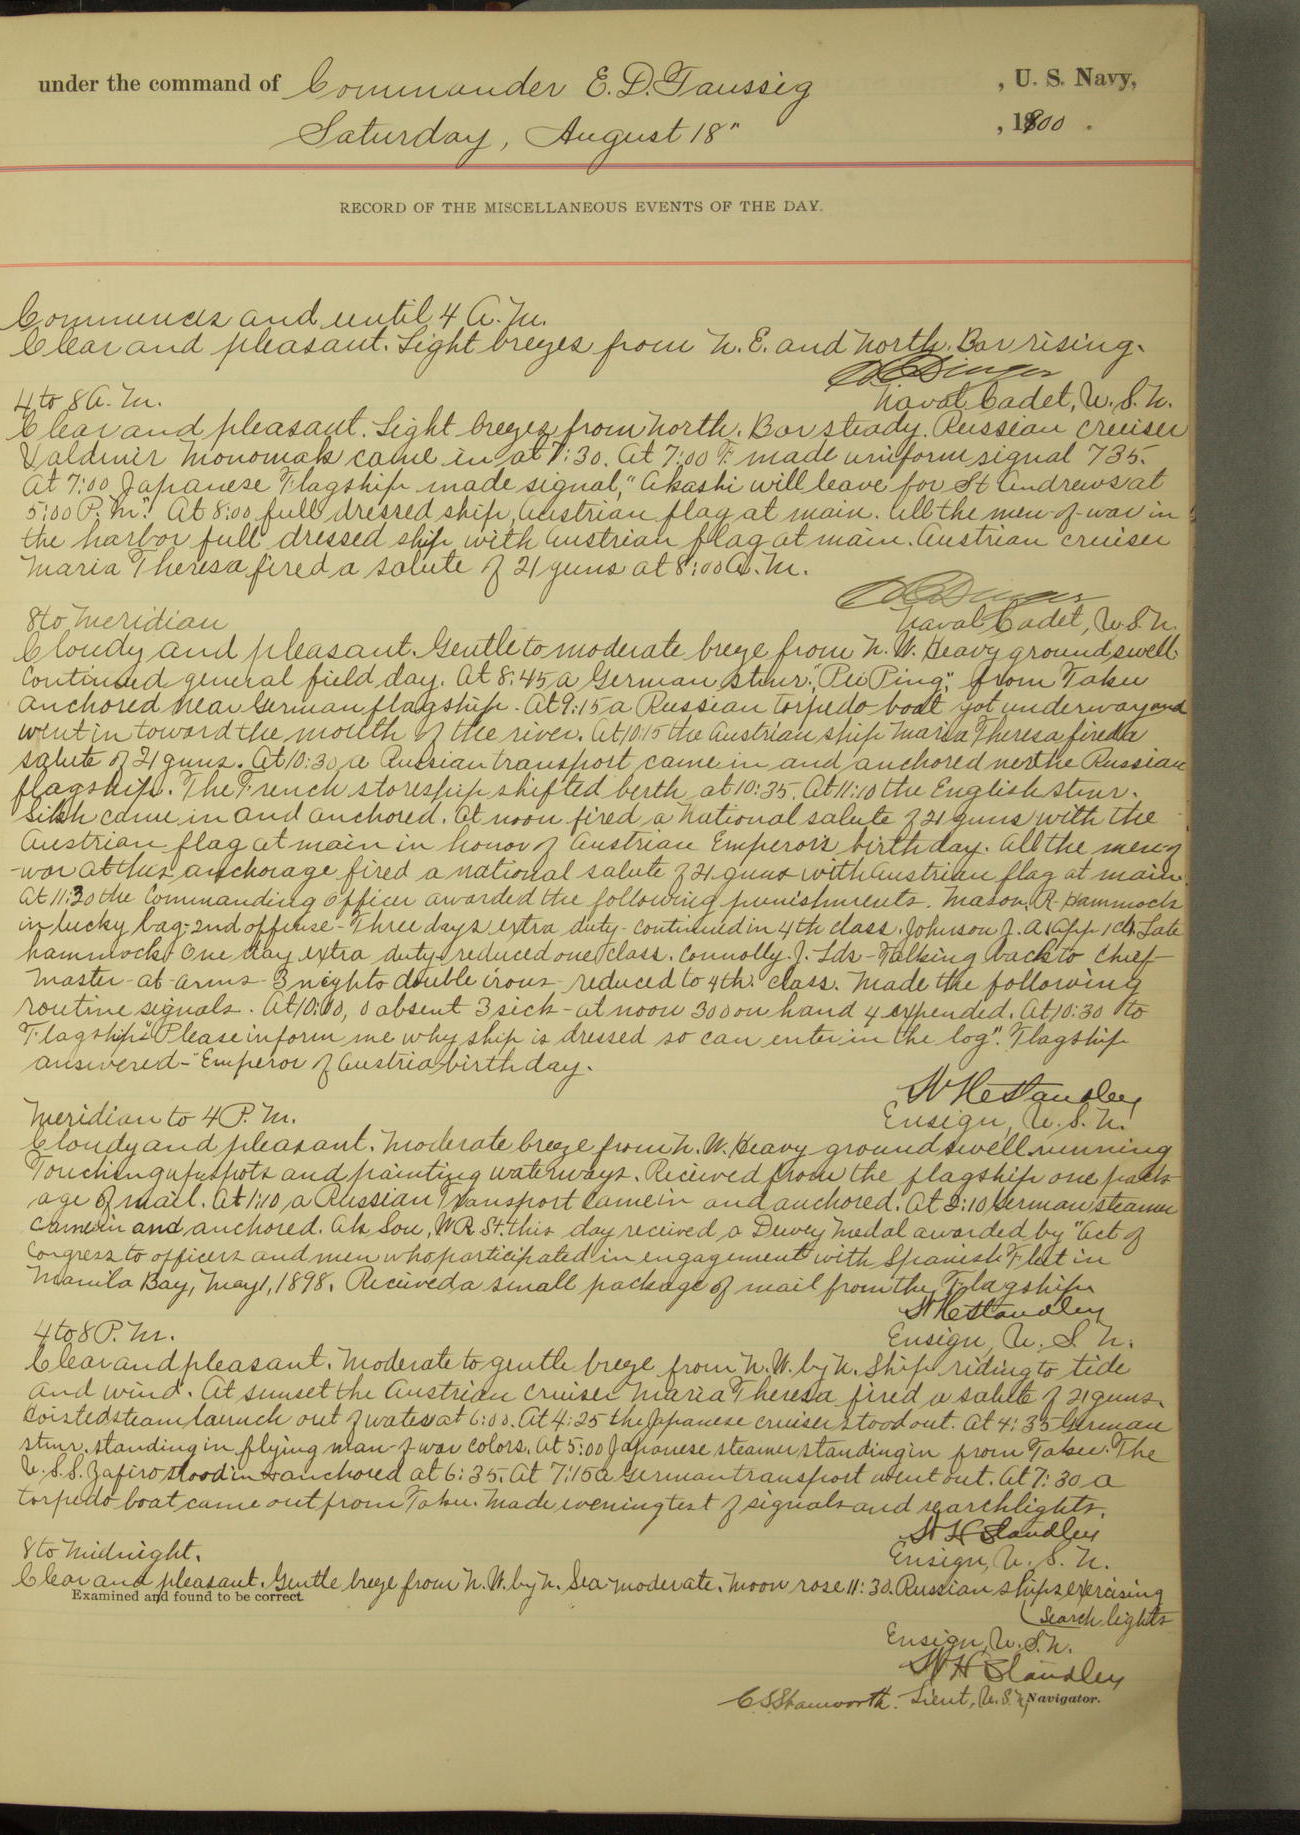 under the command of Commander E. D. Taussig , U. S. Navy,
Saturday, August 18" , 1900 .
RECORD OF THE MISCELLANEOUS EVENTS OF THE DAY.
Commences and until 4 A.M.
Clear and pleasant. Light breezes from N. E. and North. Bar rising.
Naval Cadet, U. S. N.
4 to 8 A. M.
Clear and pleasant. Light breezes from North. Bar steady. Russian cruiser
Valdmir Monomak came in at 7:30. At 7:00 F. made uniform signal 735.
At 7:00 Japanese Flagship made signal, "Akashi will leave for St Andrews at
5:00 P.M." At 8:00 full dressed ship, Austrian flag at main. All the men-of-war in
the harbor full dressed ship with Austrian flag at main. Austrian cruiser
Maria Theresa fired a salute of 21 guns at 8:00 A.M.
Naval Cadet, U.S.N.
8 to Meridian
Cloudy and pleasant. Gentle to moderate breeze from N. W. Heavy ground swell.
Continued general field day. At 8:45 a German stmr. "Pei Ping," from Taku
anchored near German flagship. At 9:15 a Russian torpedo-boat got underway and
went in toward the mouth of the river. At 10:15 the Austrian ship Maria Theresa fired a
salute of 21 guns. At 10:30 a Russian transport came in and anchored near the Russian
flagship. The French storeship shifted berth at 10:35. At 11:10 the English stmr.
Sikh came in and anchored. At noon fired a National salute of 21 guns with the
Austrian flag at main in honor of Austrian Emperor's birthday. All the men-of
-war at this anchorage fired a national salute of 21 guns with Austrian flag at main.
At 11:30 the Commanding Officer awarded the following punishments. Mason, R. Hammock
in lucky bag-2nd offense-Three days extra duty-continued in 4th class. Johnson J. A. App 1 cl. Late
hammock-One day extra duty-reduced one class. Connolly. J. Lds-Talking back to Chief
Master-at-arms-3 nights double irons-reduced to 4th class. Made the following
routine signals. At 10:00, 0 absent 3 sick-at noon 300 on hand 4 expended. At 10:30 to
Flagship "Please inform me why ship is dressed so can enter in the log". Flagship
answered-"Emperor of Austria birthday.
W H Standley
Ensign, U. S. N.
Meridian to 4 P. M.
Cloudy and pleasant. Moderate breeze from N. W. Heavy ground swell running
Touching up spots and painting waterways. Received from the flagship one pack-
age of mail. At 1:10 a Russian Transport came in and anchored. At 2:10 German steamer
came in and anchored. Ah Sou, W.R. St. this day received a Dewey Medal awarded by "Act of
Congress to officers and men who participated in engagement with Spanish Fleet in
Manila Bay, May 1, 1898. Received a small package of mail from the Flagship
W H Standley
Ensign, U. S. N.
4 to 8 P. M.
Clear and pleasant. Moderate to gentle breeze from N. W. by N. Ship riding to tide
and wind. At sunset the Austrian cruiser Maria Theresa fired a salute of 21 guns.
Hoisted steam launch out of water at 6:00. At 4:25 the Japanese cruiser stood out. At 4:35 German
stmr. standing in flying man-of-war colors. At 5:00 Japanese steamer standing in from Taku. The
U. S. S. Zafiro stood in & anchored at 6:35. At 7:15 a German transport went out. At 7:30 a
torpedo-boat came out from Taku. Made evening test of signals and searchlights.
W H Standley
Ensign, U. S. N.
8 to Midnight.
Clear and pleasant. Gentle breeze from N. W. by N. Sea moderate. Moon rose 11:30. Russian ships exercising
Search lights
Examined and found to be correct.
Ensign, U. S. N.
W H Standley
Lieut, U. S. N, Navigator.